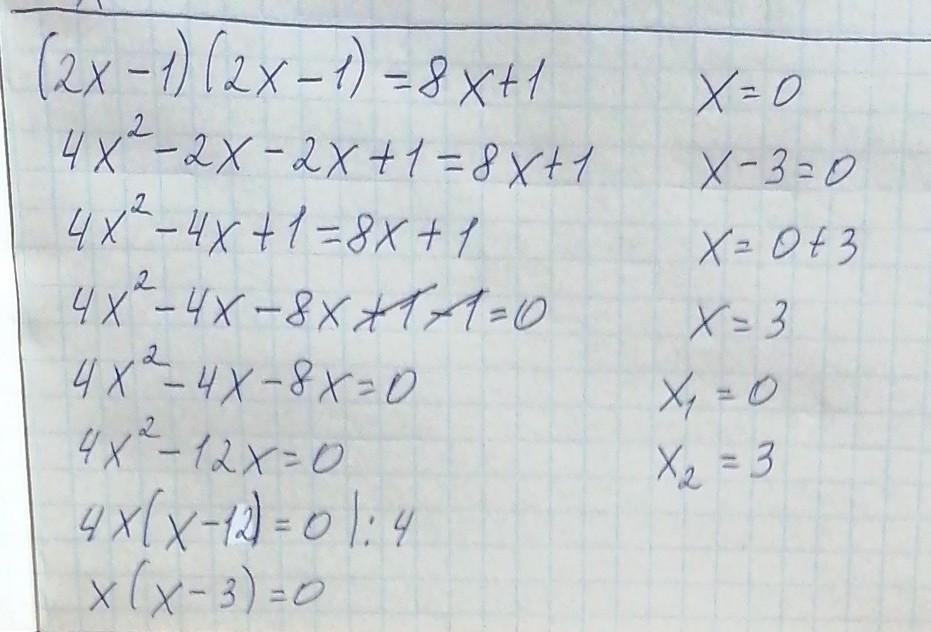 (2x-1)(2x-1)=8x+1
4x²-2x-2x+1=8x+1
4x²-4x+1=8x+1
4x²-4x-8x+1-1=0
4x²-4x-8x=0
4x²-12x=0
4x(x-12)=0|:4
x(x-3)=0
x=0
x-3=0
x=0+3
x=3
x₁=0
x₂=3